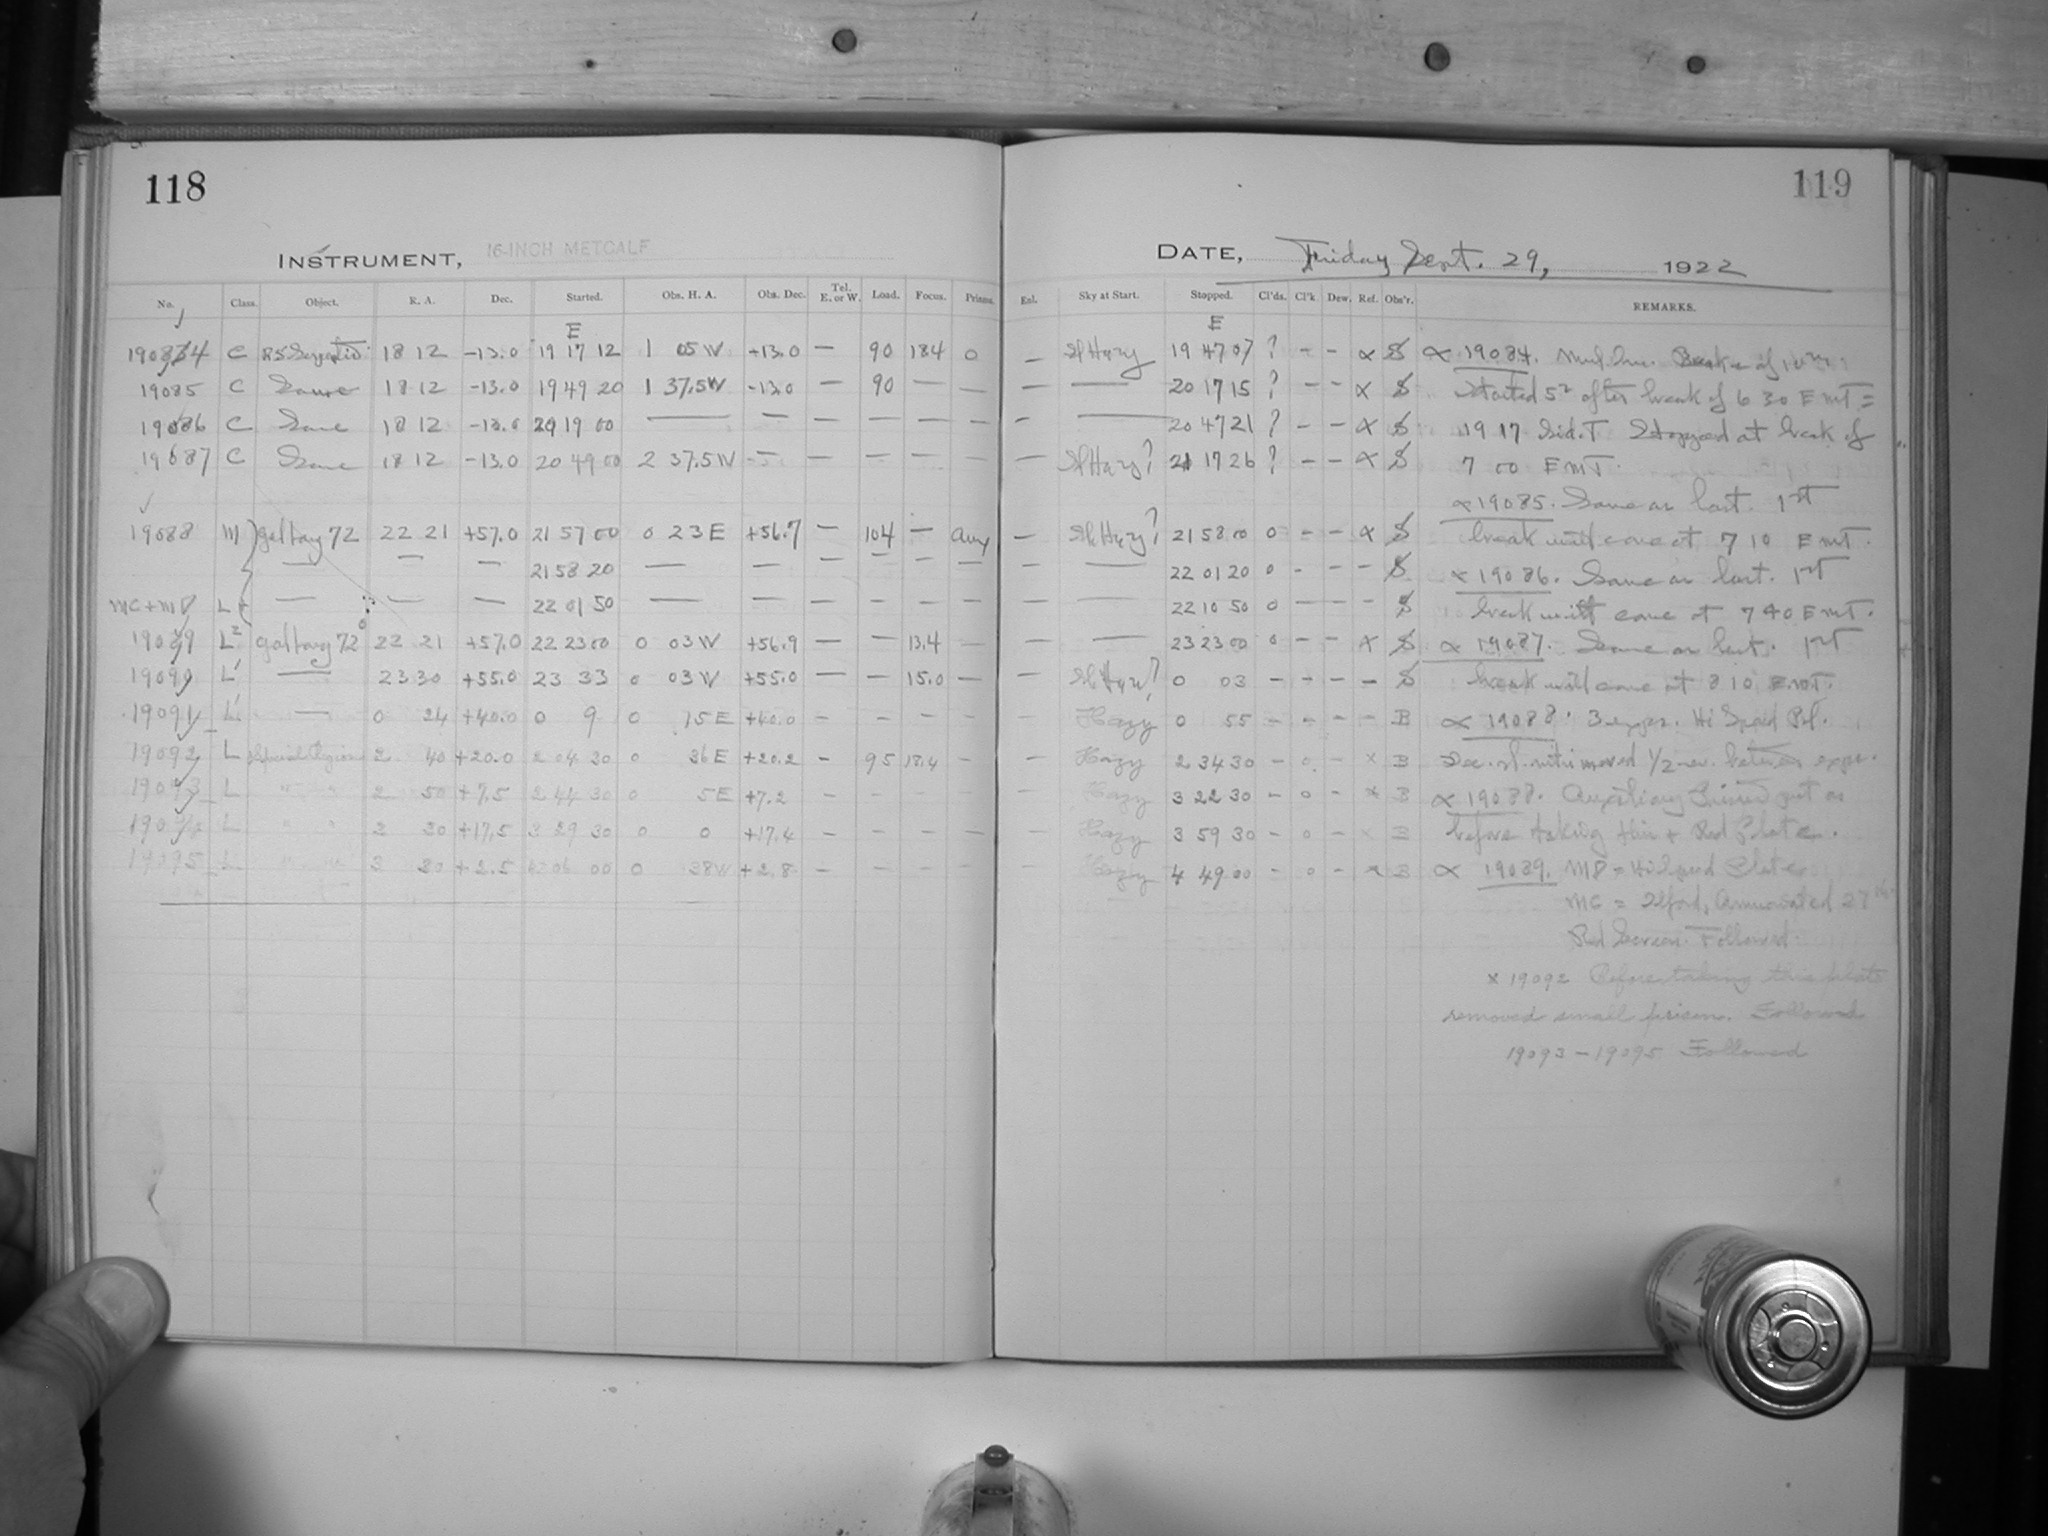 118
INSTRUMENT, 16-INCH METCALF
No. Class. Object. R. A. Dec. Started. Obs. H. A. Obs. Dec. Tel. E. or W. Load. Focus. Prisms.
E
19084 C RS Serpentid 18 12 -13.0 19 17 12 1 05 W +13.0 — 90 18.4 0
19085 C Same 18 12 -13.0 19 49 20 1 37.5W -13.0 — 90 — —
19086 C Same 18 12 -13.0 20 19 00 — — — — — —
19087 C Same 18 12 -13.0 20 49 00 2 37.5W — — — — —
19088 M Galaxy 72 22 21 +57.0 21 57 00 0 23 E +56.7 — 104 — Aux
— — — 21 58 20 — — — — — —
MC+MP L — — — 22 01 50 — — — — — —
19089 L² Galaxy 72 22 21 +57.0 22 23 00 0 03 W +56.9 — — 13.4 —
19090 L' — 23 30 +55.0 23 33 0 03 W +55.0 — — 15.0 —
19091 L' — 0 24 +40.0 0 9 0 15 E +40.0 — — — —
19092 L Special Region 2 40 +20.0 2 04 30 0 36 E +20.2 — 95 18.4 —
19093 L " " 2 50 +7.5 2 44 30 0 5 E +7.2 — — — —
L " " 3 30 +17.5 3 29 30 0 0 +17.4 — — — —
19095 L 3 30 +2.5 06 00 0 38W +2.8 — — — —
119
DATE, Friday Sept. 29, 1922
Enl. Sky at Start. Stopped. Cl'ds. Cl'k Dew. Ref. Obs'r. REMARKS.
E
— Sl Hazy 19 47 07 ? – – α S α 19084. Break of
— — 20 17 15 ? – – α S Started 5ˢ after break of 6 30 E M T =
— — 20 47 21 ? – – α S 19 17 Sid. T Stopped at break of
— Sl Hazy? 21 17 26 ? – – α S 7 00 E M T.
α 19085. Same as last. 1st
— Sl Hazy? 21 58 00 0 – – α S break will come at 7 10 E M T.
— — 22 01 20 0 – – – S α 19086. Same as last. 1st
— — 22 10 50 0 – – – S break will come at 7 40 E M T.
— 23 23 00 0 – – α S α 19087. Same as last. 1st
— Sl Hazy? 0 03 – – – – S break will come at 8 10 E.M.T.
— Hazy 0 55 – – – – B α 19088. 3 expos. Hi Speed Pl.
— Hazy 2 34 30 – 0 – x B Dec. moved 1/2 rev. between expos.
— Hazy 3 22 30 – 0 – x B α 19088. Auxiliary Prism put on
— Hazy 3 59 30 – 0 – x B before taking this + Red Plate.
— Hazy 4 49 00 – 0 – x B α 19089. MP = Hi Speed Plate
MC = Ilford, Ammoniated 27th
Red Screen. Followed.
x 19092 Before taking this plate
removed small prism. Followed
19093 – 19095 Followed